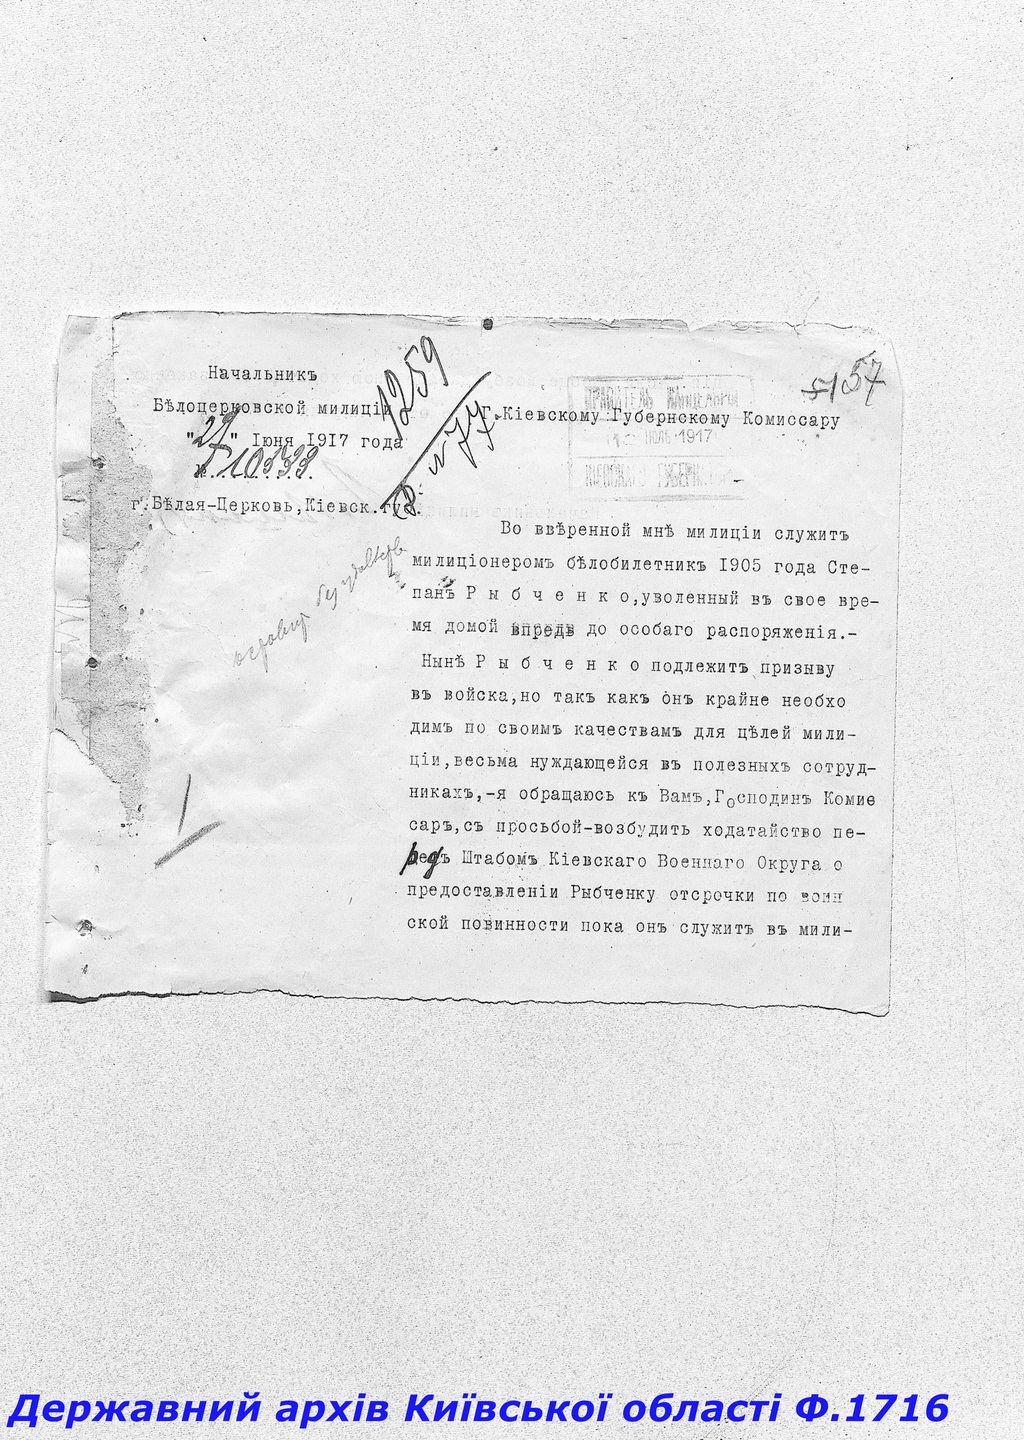 Начальникъ
Бѣлоцерковской милиціи
"29" Іюня 1917 года
№ 10333
г.Бѣлая-Церковь,Кіевск.губ.
1259
57
Г.Кіевскому Губернскому Комиссару
ПРАВИТЕЛЬ КАНЦЕЛЯРІИ
ІЮЛЬ 1917
Во ввѣренной мнѣ милиціи служитъ
милиціонеромъ бѣлобилетникъ 1905 года Сте-
панъ Р ы б ч е н к о,уволенный въ свое вре-
мя домой впредь до особаго распоряженія.-
Нынѣ Р ы б ч е н к о подлежитъ призыву
въ войска,но такъ какъ онъ крайне необхо
димъ по своимъ качествамъ для цѣлей мили-
ціи,весьма нуждающейся въ полезныхъ сотруд-
никахъ,-я обращаюсь къ Вамъ,Господинъ Комис
саръ,съ просьбой-возбудить ходатайство пе-
редъ Штабомъ Кіевскаго Военнаго Округа о
предоставленіи Рыбченку отсрочки по воин
ской повинности пока онъ служитъ въ мили-
Державний архів Київської області Ф.1716